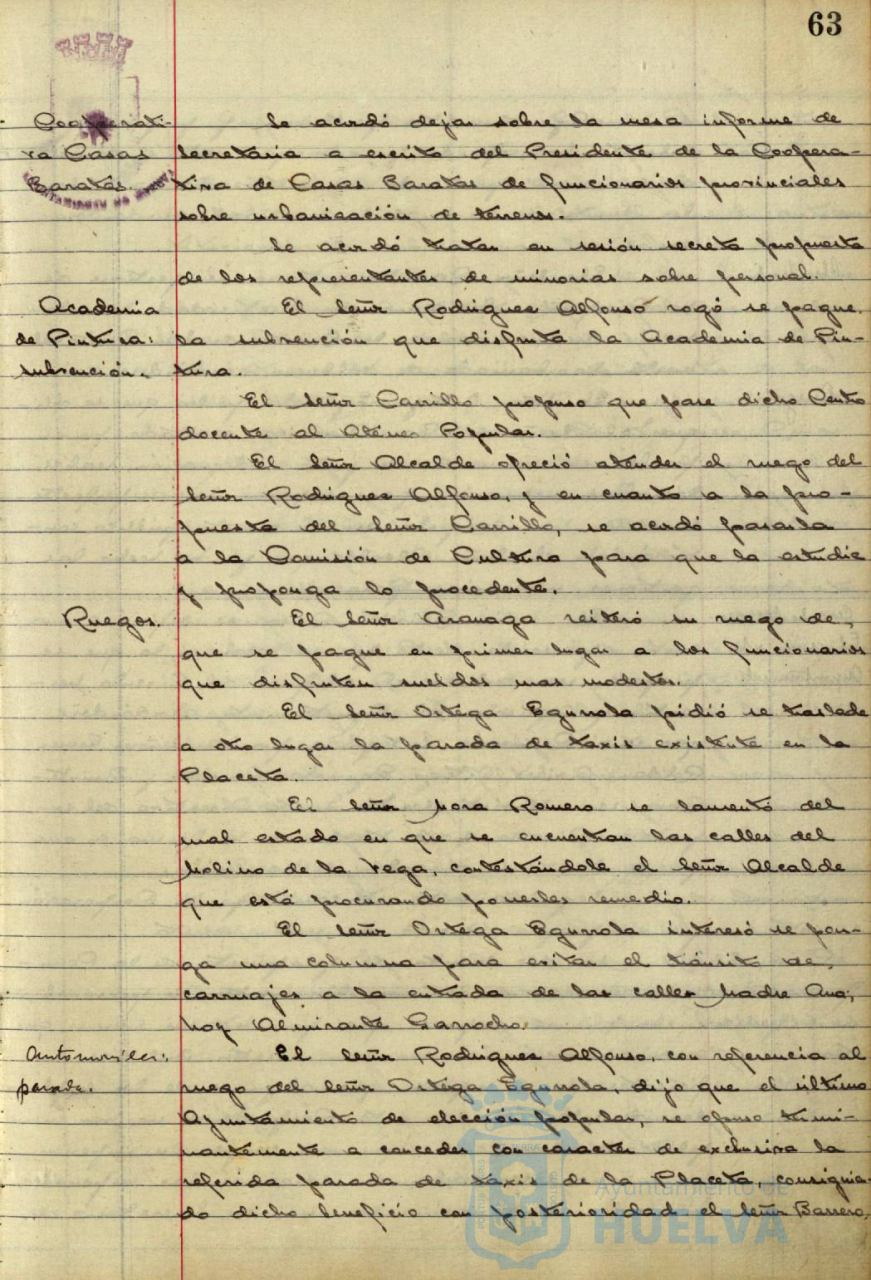 63
Cooperati-
va Casas
Baratas.
Se acordó dejar sobre la mesa informe de
Secretaria a escrito del Presidente de la Coopera-
tiva de Casas Baratas de funcionarios provinciales
sobre urbanización de terrenos.
Se acordó tratar en sesión secreta propuesta
de los representantes de minorias sobre personal.
Academia
de Pintura:
subvención.
El Señor Rodriguez Alfonso rogó se pague
la subvención que disfruta la Academia de Pin-
tura.
El Señor Carrillo propuso que pase dicho Centro
docente al Ateneo Popular.
El Señor Alcalde ofreció atender el ruego del
Señor Rodriguez Alfonso, y en cuanto a la pro-
puesta del Señor Carrillo, se acordó pasarla
a la Comisión de Cultura para que la estudie
y proponga lo procedente.
Ruegos.
El Señor Aranaga reiteró su ruego de
que se pague en primer lugar a los funcionarios
que disfruten sueldos mas modestos.
El Señor Ortega Egurrola pidió se traslade
a otro lugar la parada de taxis existente en la
Placeta.
El Señor Mora Romero se lamentó del
mal estado en que se encuentran las calles del
Molino de la Vega, contestándole el Señor Alcalde
que está procurando ponerles remedio.
El Señor Ortega Egurrola interesó se pon-
ga una columna para evitar el tránsito de
carruajes a la entrada de las calles Madre Ana,
hoy Almirante Garrocho.
Automóviles:
parada.
El Señor Rodriguez Alfonso, con referencia al
ruego del Señor Ortega Egurrola, dijo que el último
Ayuntamiento de elección popular, se opuso termi-
nantemente a conceder con caracter de exclusiva la
referida parada de taxis de la Placeta, consiguien-
do dicho beneficio con posterioridad el Señor Barrero,
Ayuntamiento de
HUELVA